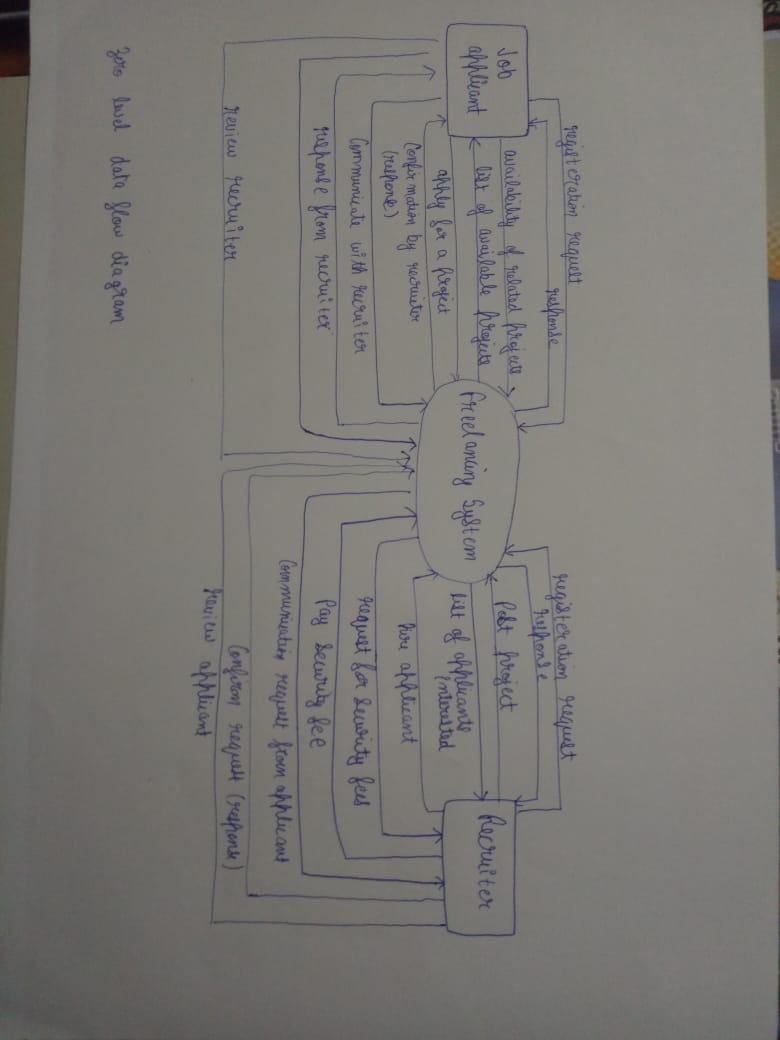 registeration request
response
Job
applicant
availability of related projects
list of available projects
apply for a project
Confirmation by recruiter
(response)
Communicate with recruiter
response from recruiter
review recruiter
Freelancing System
registeration request
response
Post project
list of applicants
interested
hire applicant
request for security fees
Pay security fee
Communication request from applicant
Confirm request (response)
review applicant
Recruiter
zero level data flow diagram